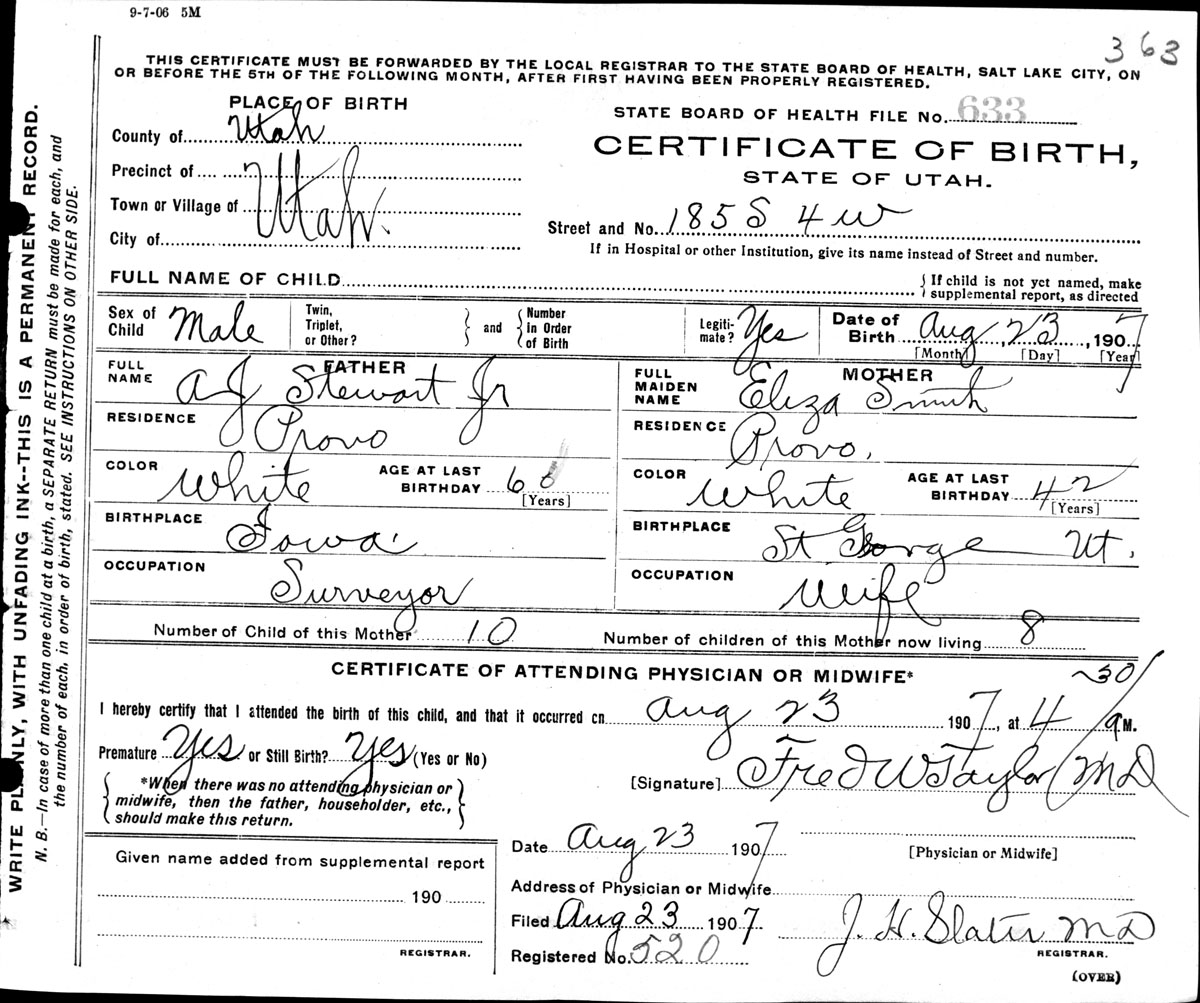 9-7-06 5M
363
THIS CERTIFICATE MUST BE FORWARDED BY THE LOCAL REGISTRAR TO THE STATE BOARD OF HEALTH, SALT LAKE CITY, ON
OR BEFORE THE 5TH OF THE FOLLOWING MONTH, AFTER FIRST HAVING BEEN PROPERLY REGISTERED.
PLACE OF BIRTH
STATE BOARD OF HEALTH FILE No. 633
County of Utah
CERTIFICATE OF BIRTH,
STATE OF UTAH.
Precinct of
Town or Village of Utah.
City of
Street and No. 185 S 4 W
If in Hospital or other Institution, give its name instead of Street and number.
FULL NAME OF CHILD
{ If child is not yet named, make
supplemental report, as directed
Sex of Child Male
Twin, Triplet, or Other? } and { Number in Order of Birth
Legiti-mate? Yes
Date of Birth Aug, 23, 1907
[Month] [Day] [Year]
FATHER
FULL NAME A J Stewart Jr
MOTHER
FULL MAIDEN NAME Eliza Smith
RESIDENCE Provo
RESIDENCE Provo.
COLOR White AGE AT LAST BIRTHDAY 60 [Years]
COLOR White AGE AT LAST BIRTHDAY 42 [Years]
BIRTHPLACE Iowa
BIRTHPLACE St George Ut.
OCCUPATION Surveyor
OCCUPATION Wife
Number of Child of this Mother 10
Number of children of this Mother now living 8
CERTIFICATE OF ATTENDING PHYSICIAN OR MIDWIFE*
I hereby certify that I attended the birth of this child, and that it occurred on Aug 23 1907, at 4 30/ a M.
Premature Yes or Still Birth? Yes (Yes or No)
{ *When there was no attending physician or
midwife, then the father, householder, etc.,
should make this return. }
[Signature] Fred W Taylor MD
Date Aug 23 1907
[Physician or Midwife]
Given name added from supplemental report
190
REGISTRAR.
Address of Physician or Midwife
Filed Aug 23 1907
J. H. Slater MD
REGISTRAR.
Registered No. 520
(OVER)
WRITE PLAINLY, WITH UNFADING INK--THIS IS A PERMANENT RECORD.
N. B.—In case of more than one child at a birth, a SEPARATE RETURN must be made for each, and
the number of each, in order of birth, stated. SEE INSTRUCTIONS ON OTHER SIDE.